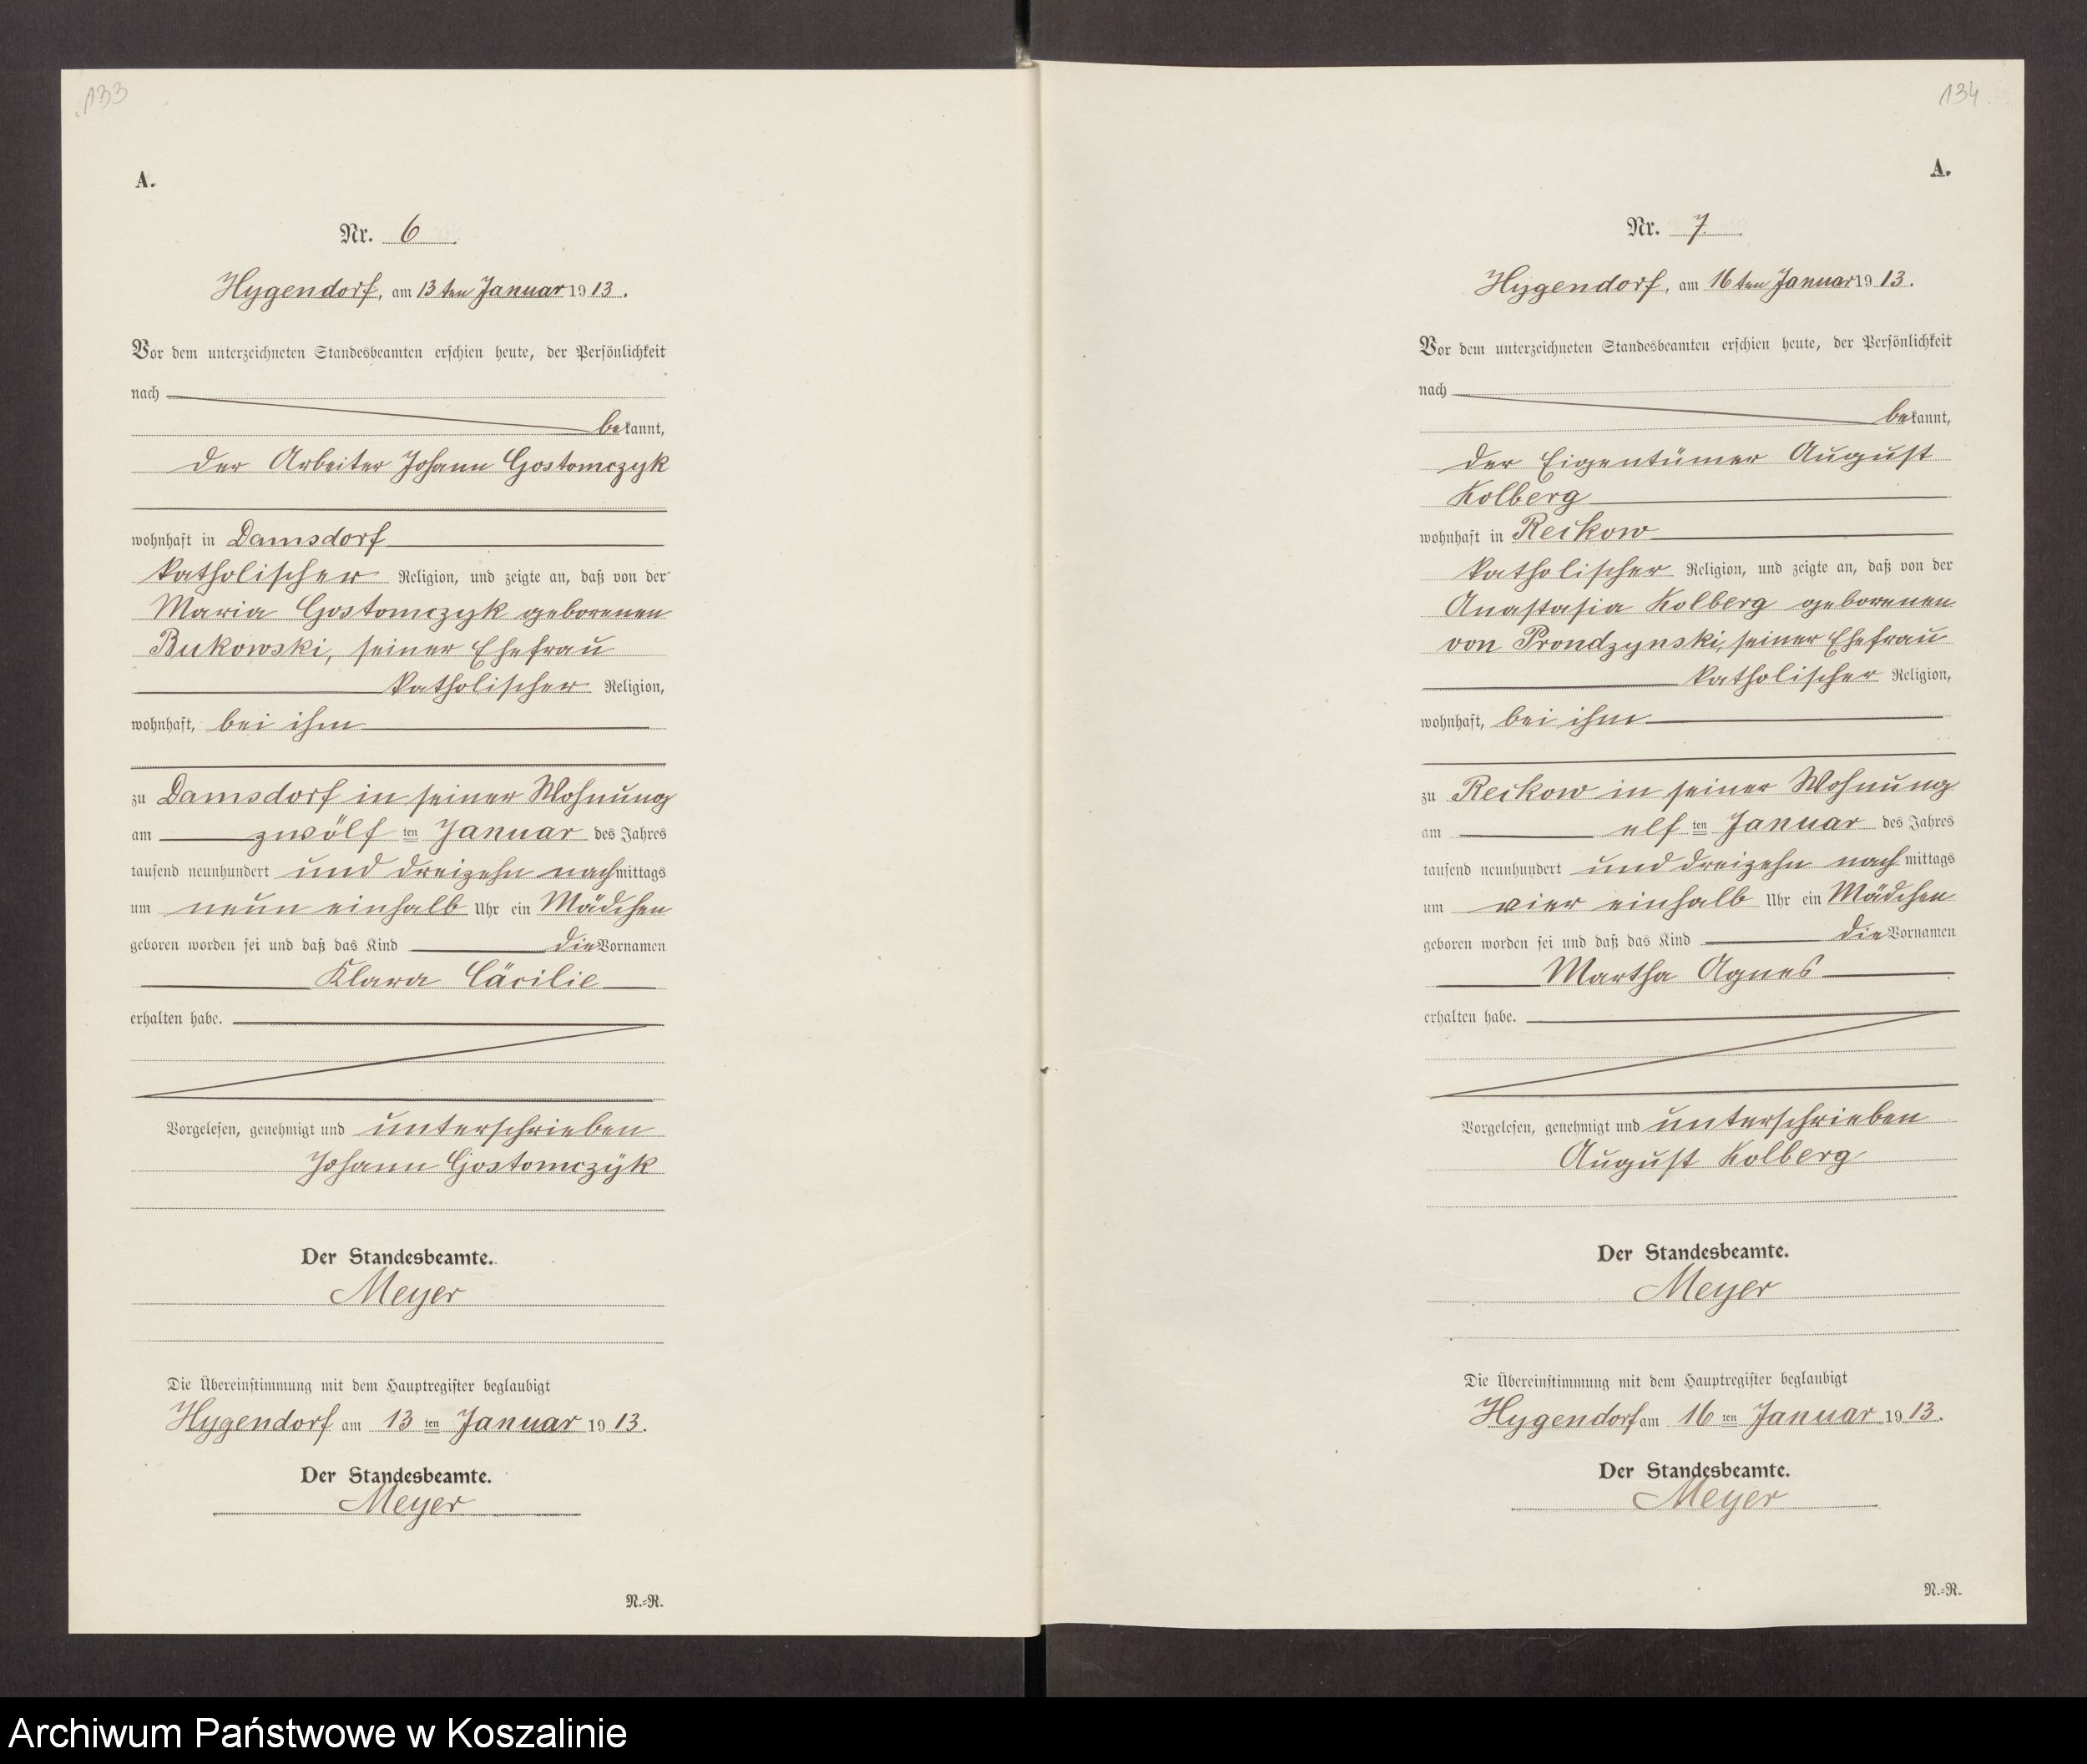 133
A.
Nr. 6
Hygendorf, am 13ten Januar 1913.
Vor dem unterzeichneten Standesbeamten erschien heute, der Persönlichkeit
nach
bekannt,
der Arbeiter Johann Gostomczyk
wohnhaft in Damsdorf
katholischer Religion, und zeigte an, daß von der
Maria Gostomczyk geborenen
Bukowski, seiner Ehefrau
katholischer Religion,
wohnhaft, bei ihm
zu Damsdorf in seiner Wohnung
am zwölften Januar des Jahres
tausend neunhundert und dreizehn nachmittags
um neun einhalb Uhr ein Mädchen
geboren worden sei und daß das Kind die Vornamen
Klara Cäcilie
erhalten habe.
Vorgelesen, genehmigt und unterschrieben
Johann Gostomczÿk
Der Standesbeamte.
Meyer
Die Übereinstimmung mit dem Hauptregister beglaubigt
Hygendorf am 13ten Januar 1913.
Der Standesbeamte.
Meyer
N.=R.
134
A.
Nr. 7.
Hygendorf, am 16ten Januar 1913.
Vor dem unterzeichneten Standesbeamten erschien heute, der Persönlichkeit
nach
bekannt,
der Eigentümer August
Kolberg
wohnhaft in Reckow
katholischer Religion, und zeigte an, daß von der
Anastasia Kolberg geborenen
von Prondzynski, seiner Ehefrau
katholischer Religion,
wohnhaft, bei ihm
zu Reckow in seiner Wohnung
am elften Januar des Jahres
tausend neunhundert und dreizehn nachmittags
um vier einhalb Uhr ein Mädchen
geboren worden sei und daß das Kind die Vornamen
Martha Agnes
erhalten habe.
Vorgelesen, genehmigt und unterschrieben
August Kolberg
Der Standesbeamte.
Meyer
Die Übereinstimmung mit dem Hauptregister beglaubigt
Hygendorf am 16ten Januar 1913.
Der Standesbeamte.
Meyer
N.=R.
Archiwum Państwowe w Koszalinie